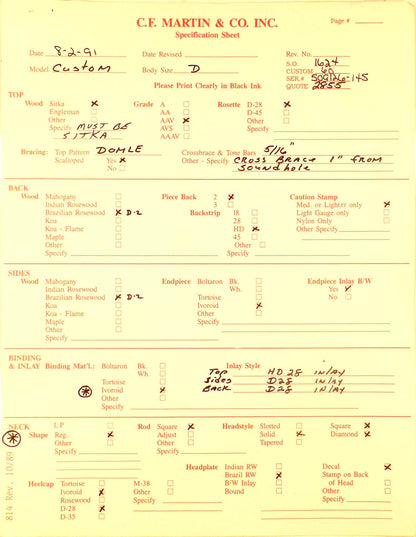 C.F. MARTIN & CO. INC.
Page #
Specification Sheet
Date 8-2-91 Date Revised Rev. No.
S.O. 1624
Model Custom Body Size D CUSTOM 60
SER.# 509126-145
Please Print Clearly in Black Ink QUOTE 2855
TOP
Wood Sitka x Grade A Rosette D-28 x
Engleman AA D-45
Other AAV x Other
Specify MUST BE AVS Specify
SITKA AAAV
Bracing: Top Pattern DOMLE Crossbrace & Tone Bars 5/16"
Scalloped Yes x Other - Specify CROSS BRACE 1" FROM
No Soundhole
BACK
Wood Mahogany Piece Back 2 x Caution Stamp
Indian Rosewood 3 Med. or Lighter only x
Brazilian Rosewood x D-2 Backstrip 18 Light Gauge only
Koa 28 Nylon Only
Koa - Flame HD x Other Specify
Maple 45
Other Other
Specify Specify
SIDES
Wood Mahogany Endpiece Boltaron Bk. Endpiece Inlay B/W
Indian Rosewood Wh. Yes x
Brazilian Rosewood x D-2 Tortoise No
Koa Ivoroid x
Koa - Flame Other
Maple Specify
Other
Specify
BINDING
& INLAY Binding Mat'l.: Boltaron Bk. Inlay Style
Wh. Top HD 28 inlay
Tortoise Sides D28 inlay
Ivoroid x Back D28 inlay
Other
Specify
NECK L P Rod Square x Headstyle Slotted Square x
Shape Reg. x Adjust Solid x Diamond x
Other Other Tapered
Specify Specify
Headplate Indian RW Decal x
Brazil RW x Stamp on Back
Heelcap Tortoise M-38 B/W Inlay of Head
Ivoroid x Other Bound Other
Rosewood Specify
D-28 x
D-35
814 Rev. 10/89